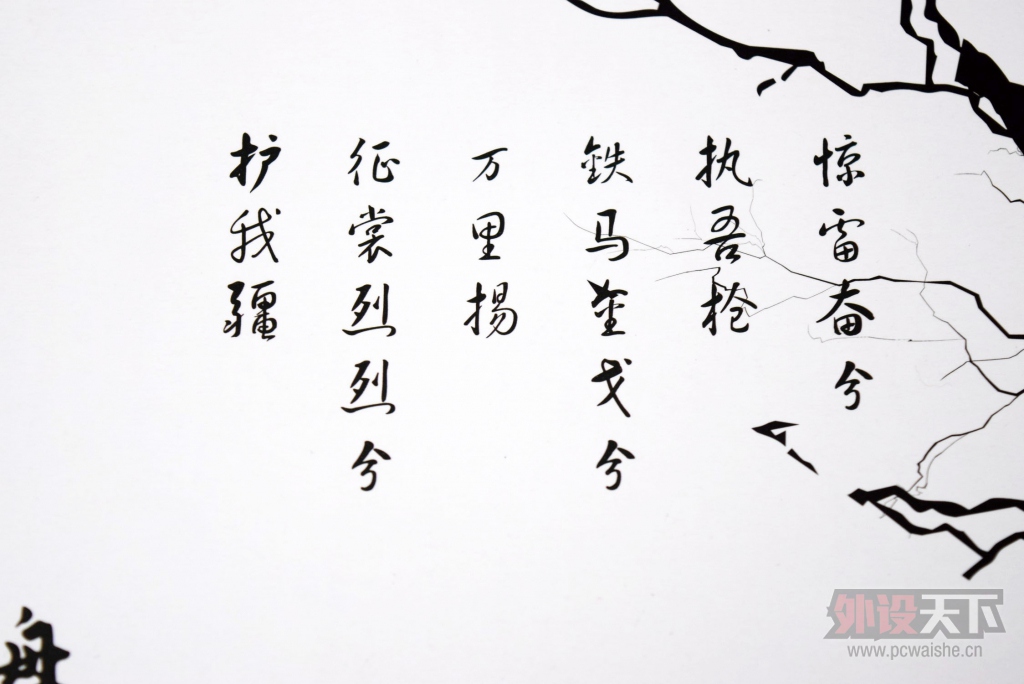 惊雷奋兮
执吾枪
鉄马金戈兮
万里揚
征裳烈烈兮
护我疆
外设天下
www.pcwaishe.cn